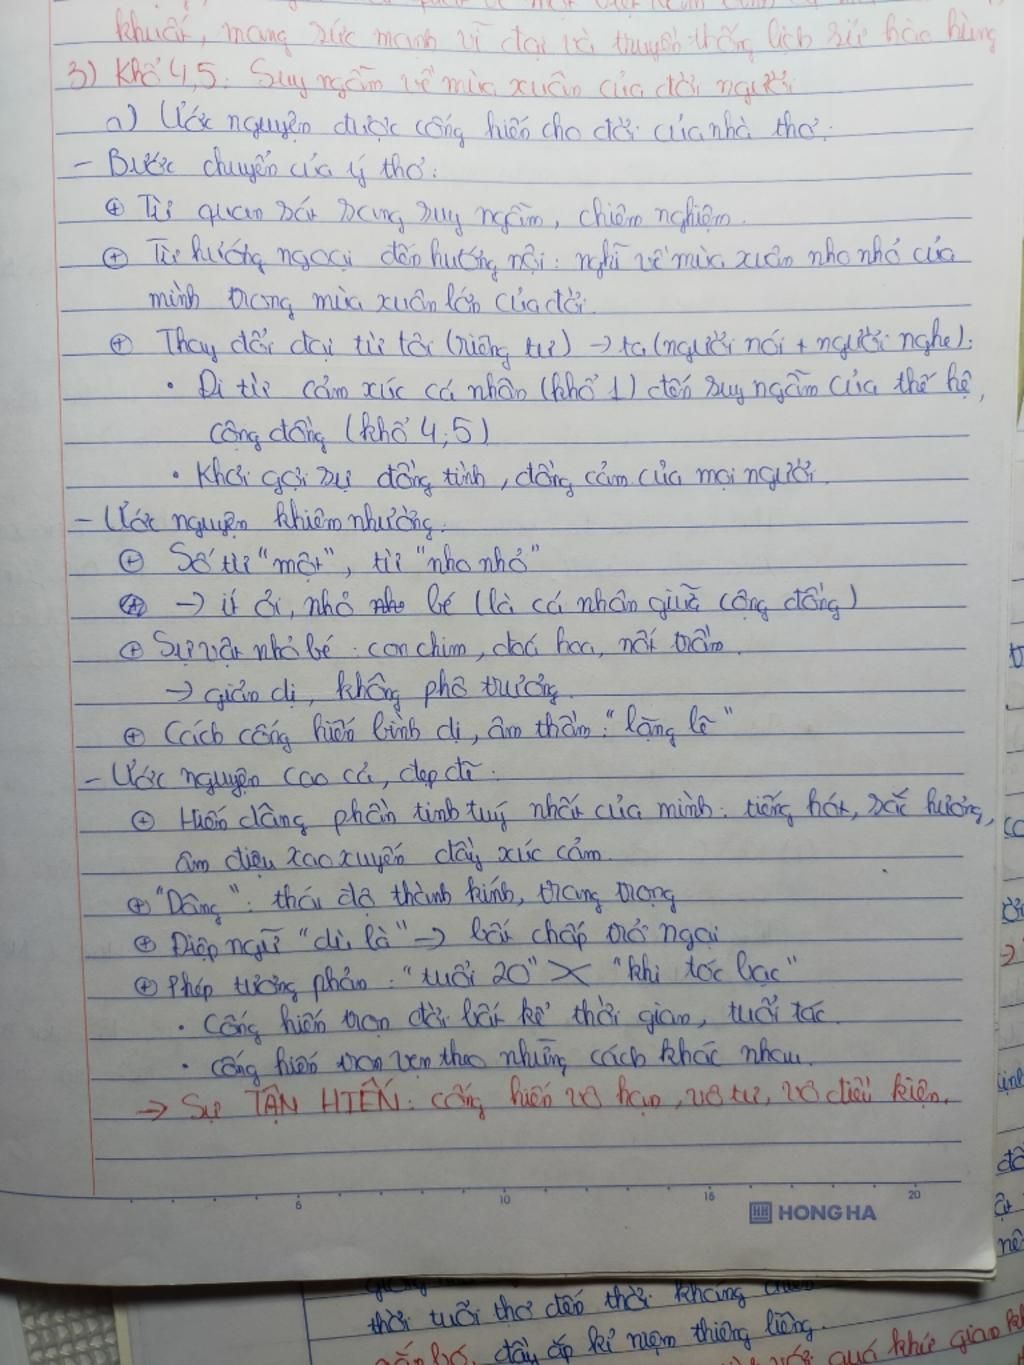 khuất, mang sức mạnh vĩ đại và truyền thống lịch sử hào hùng
3) Khổ 4,5: Suy ngẫm về mùa xuân của đời người
a) Ước nguyện được cống hiến cho đời của nhà thơ:
- Bước chuyển của ý thơ:
+ Từ quan sát sang suy ngẫm, chiêm nghiệm.
+ Từ hướng ngoại đến hướng nội: nghĩ về mùa xuân nho nhỏ của
mình trong mùa xuân lớn của đời.
+ Thay đổi đại từ tôi (riêng tư) → ta (người nói + người nghe).
• Đi từ cảm xúc cá nhân (khổ 1) đến suy ngẫm của thế hệ,
cộng đồng (khổ 4,5)
• Khơi gợi sự đồng tình, đồng cảm của mọi người.
- Ước nguyện khiêm nhường.
+ Số từ "một", từ "nho nhỏ"
→ ít ỏi, nhỏ bé (là cá nhân giữa cộng đồng)
+ Sự vật nhỏ bé: con chim, đoá hoa, nốt trầm.
→ giản dị, không phô trương.
+ Cách cống hiến bình dị, âm thầm: "lặng lẽ"
- Ước nguyện cao cả, đẹp đẽ:
+ Hiến dâng phần tinh tuý nhất của mình: tiếng hót, sắc hương,
âm điệu xao xuyến đầy xúc cảm.
+ "Dâng": thái độ thành kính, trang trọng
+ Điệp ngữ "dù là" → bất chấp trở ngại
+ Phép tương phản: "tuổi 20" X "khi tóc bạc"
• Cống hiến trọn đời bất kể thời gian, tuổi tác.
• Cống hiến trọn vẹn theo những cách khác nhau.
→ Sự TẬN HIẾN: cống hiến vô hạn, vô tư, vô điều kiện.
5 10 15 20
HONG HA
thời tuổi thơ đến thời kháng
đầy ắp kỉ niệm thiêng liêng.
quá khứ gian